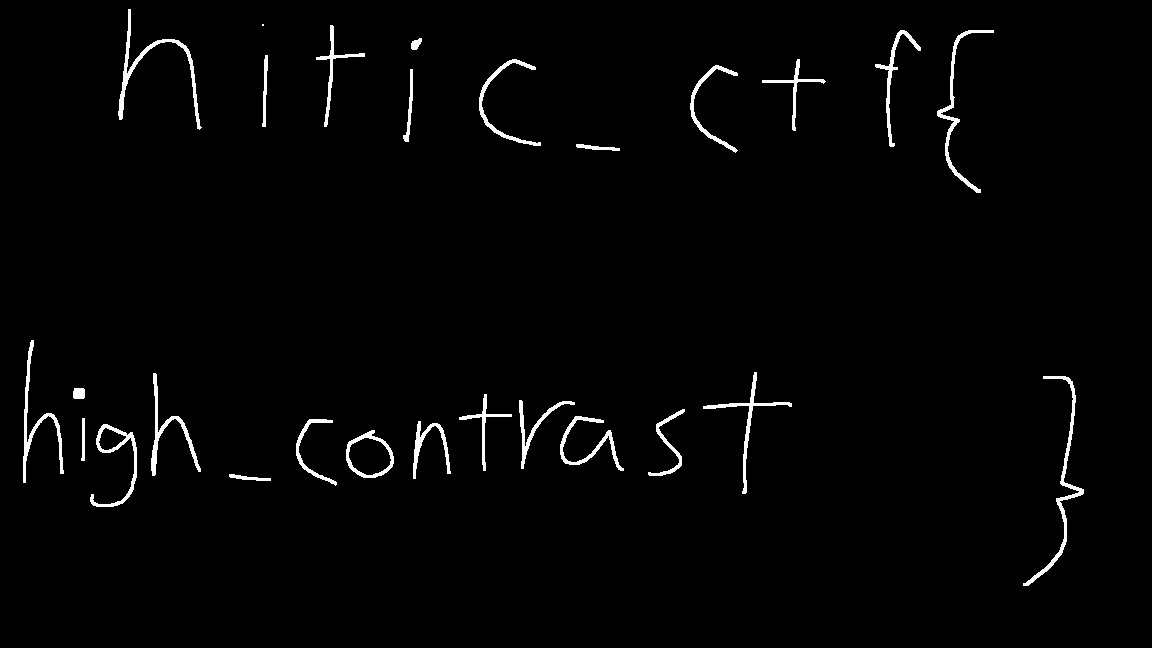 hitic_ctf{
high_contrast }